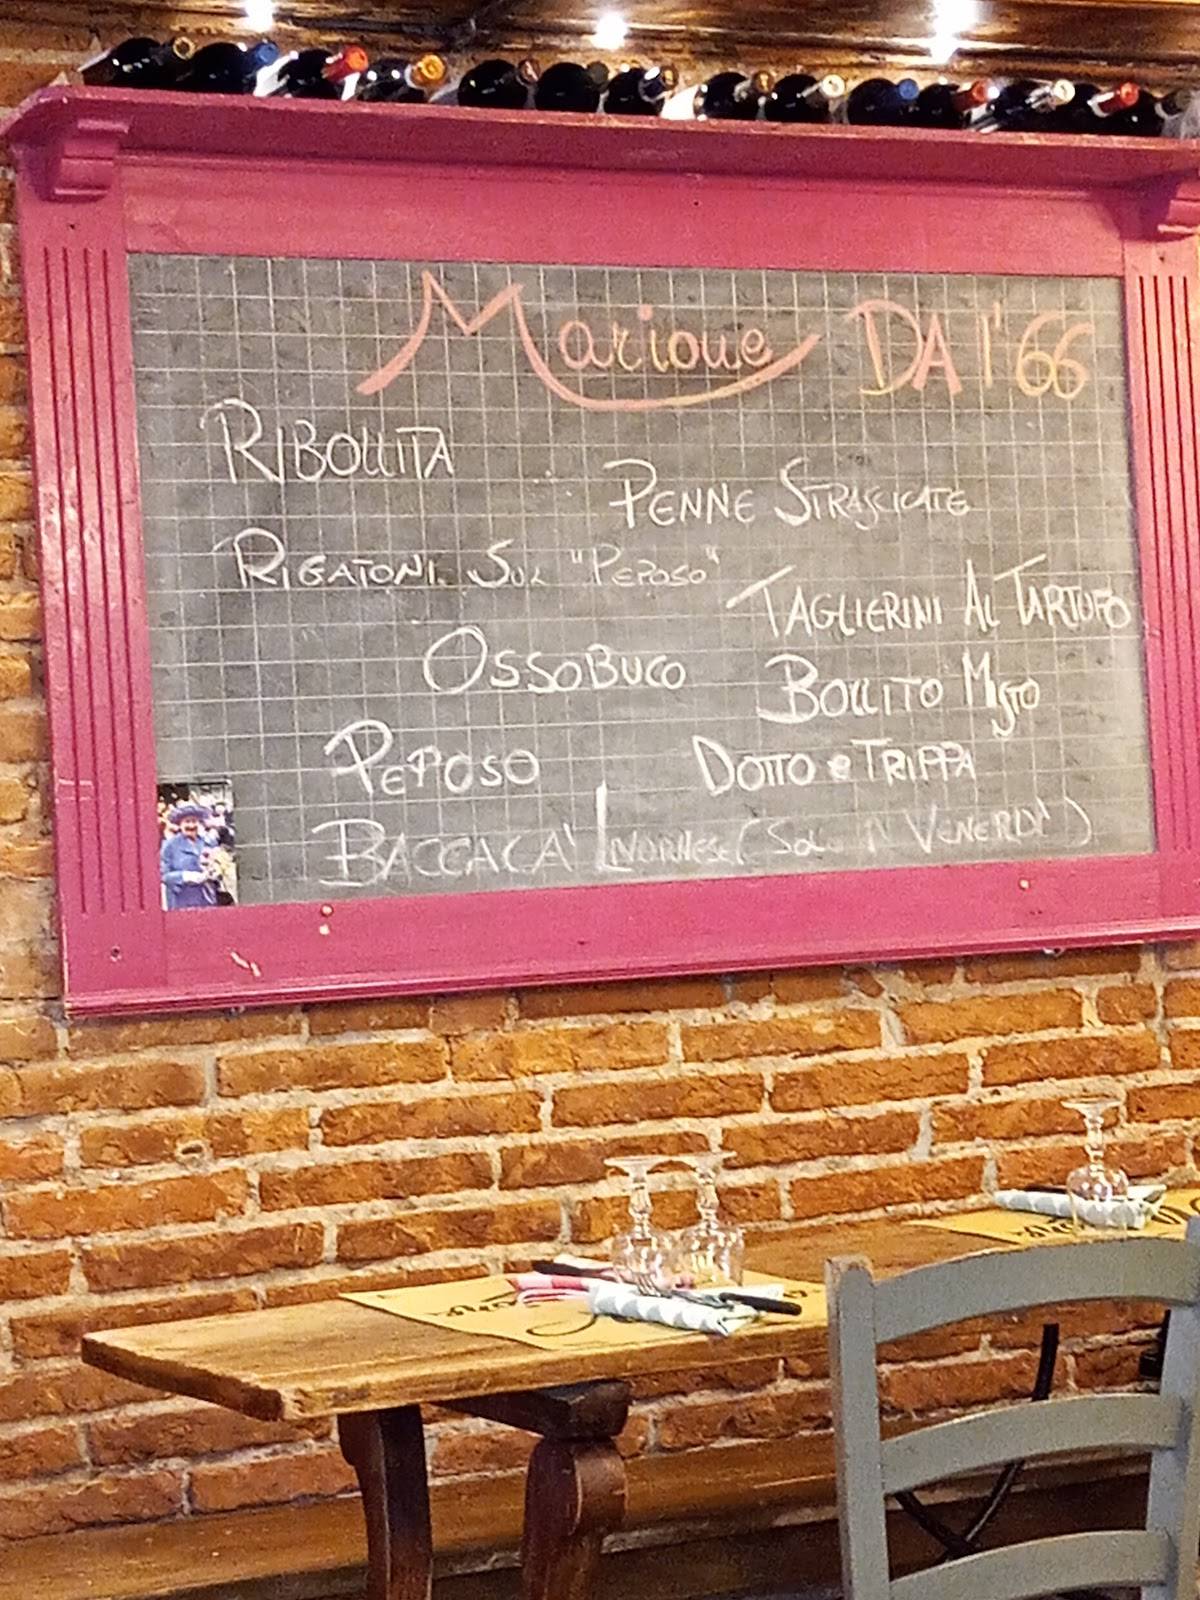 Marione DAl'66
RIBOLLITA
PENNE STRASCICATE
RIGATONI SUL "PEPOSO"
TAGLIERINI AL TARTUFO
OSSOBUCO
BOLLITO MISTO
PEPOSO
DOTTO e TRIPPA
BACCACA' LIVORNESE (SOLO il VENERDI')